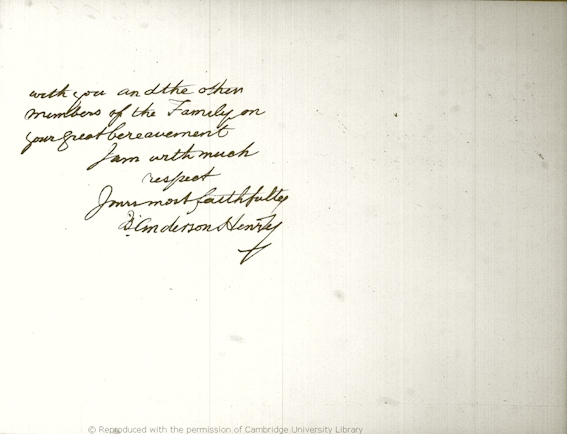 with you and the other
members of the Family on
your great bereavement
I am with much
respect
Yours most faithfully
Anderson Henry
© Reproduced with the permission of Cambridge University Library